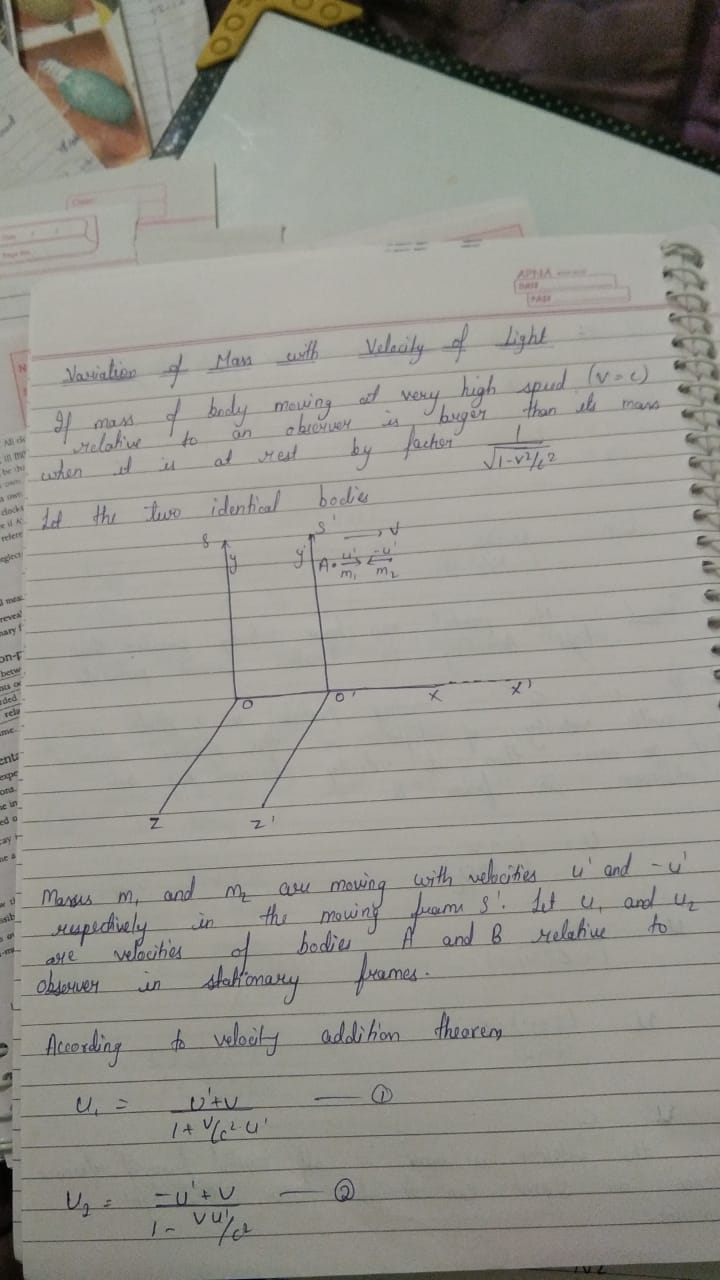 APNA
DATE
PAGE
Variation of Mass with Velocity of Light
If mass of body moving at very high speed (v=c)
relative to an observer is larger than its mass
when it is at rest by factor 1/√1-v²/c²
Let the two identical bodies
S S' → v
y y' A• u' -u'
m₁ m₂
O O' X X'
Z Z'
Masses m₁ and m₂ are moving with velocities u' and -u'
respectively in the moving frame S'. Let u₁ and u₂
are velocities of bodies A and B relative to
observer in stationary frames.
According to velocity addition theorem
U₁ = U'+V / 1+V/c².U' — ①
U₂ = -U'+V / 1-VU'/c² — ②